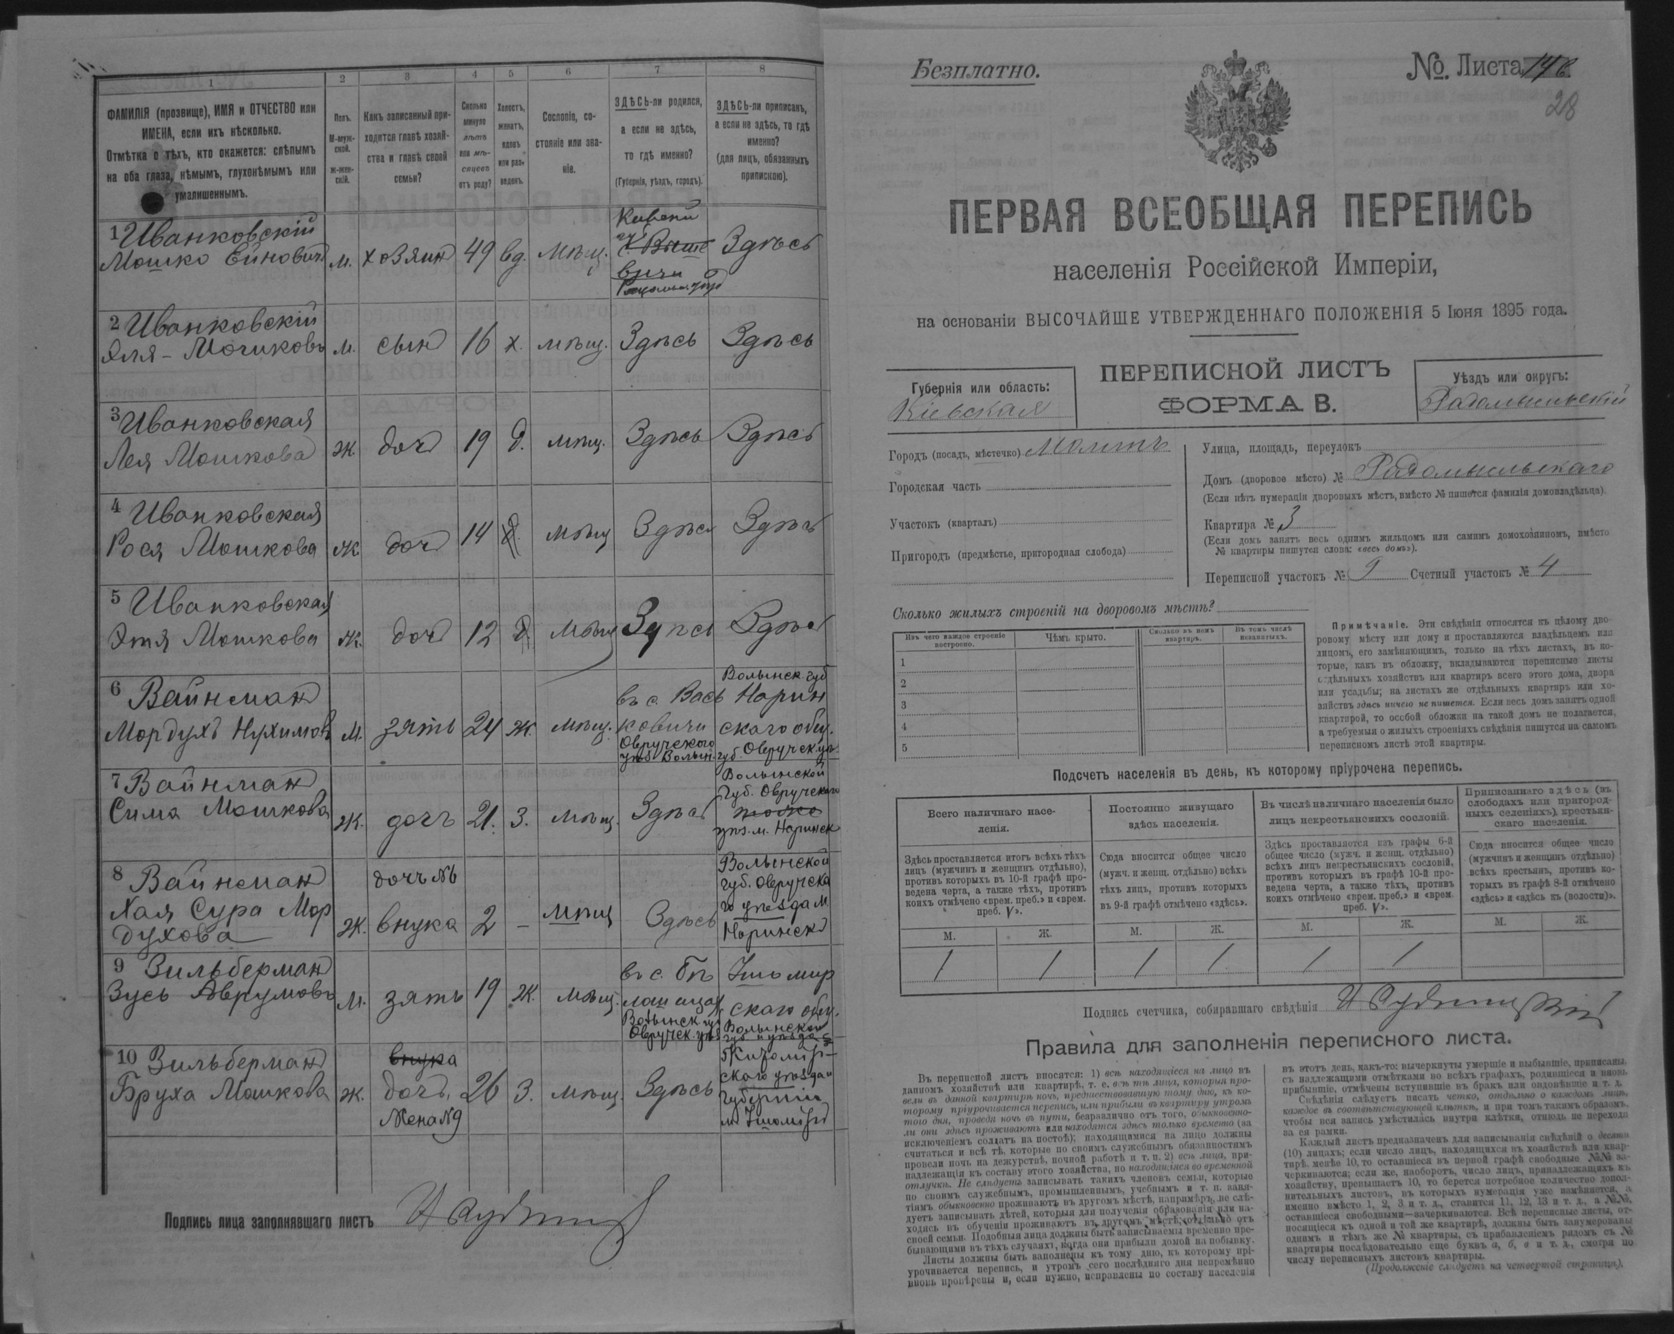 1 2 3 4 5 6 7 8
ФАМИЛІЯ (прозвище), ИМЯ и ОТЧЕСТВО или
ИМЕНА, если ихъ нѣсколько.
Отмѣтка о тѣхъ, кто окажется: слѣпымъ
на оба глаза, нѣмымъ, глухонѣмымъ или
умалишеннымъ.
Полъ.
М-мужской.
Ж-женскій.
Какъ записанный при-
ходится главѣ хозяй-
ства и главѣ своей
семьи?
Сколько
минуло
лѣтъ
или мѣ-
сяцевъ
отъ роду?
Холостъ,
женатъ,
вдовъ
или раз-
веденъ.
Сословіе, со-
стояніе или зва-
ніе.
ЗДѢСЬ-ли родился,
а если не здѣсь,
то гдѣ именно?
(Губернія, уѣздъ, городъ).
ЗДѢСЬ-ли приписанъ,
а если не здѣсь, то гдѣ
именно?
(для лицъ, обязанныхъ
припискою).
1 Иванковскій
Мошко Ейновичъ м. хозяин 49 вд. мѣщ. Здѣсь
2 Иванковскій
Эля-Мошковъ м. сын 16 х. мѣщ. Здѣсь Здѣсь
3 Иванковская
Лея Мошкова ж доч 19 д. мѣщ. Здѣсь Здѣсь
4 Иванковская
Рося Мошкова ж доч 14 д. мѣщ Здѣся Здѣсь
5 Иванковская
Этя Мошкова ж. доч 12 д. мѣщ Здѣсь Здѣсь
6 Вайнман
Мордухъ Нухимовъ м. зять 24 ж. мѣщ.
въ с. Вась
ковичи
Овручского
уѣз. Волын. губ.
Волынск. губ
Норин
ского общ.
Овруч. уѣз.
7 Вайнман
Сима Мошкова ж. дочь 21. з. мѣщ. Здѣсь
Волынской
губ. Овручского
уѣз. м. Норинск
8 Вайнман
Хая Сура Мор
духова ж. дочь №6
внука 2 – мѣщ Здѣсь
Волынской
губ. Овручска
го уѣзда м
Норинск
9 Зильберман
Зусь Аврумовъ м. зять 19 ж. мѣщ.
Волынск. губ
Овручск. уѣз
Ушомир
ского общ.
Волынской
10 Зильберман
Бруха Мошкова ж. внука
доч,
жена №9 26 з. мѣщ. Здѣсь
Житомір-
ского уѣзда и
губерніи
м. Ушомір
Подпись лица заполнявшаго листъ
Безплатно.
№. Листа 14 в.
28
ПЕРВАЯ ВСЕОБЩАЯ ПЕРЕПИСЬ
населенія Россійской Имперіи,
на основаніи ВЫСОЧАЙШЕ УТВЕРЖДЕННАГО ПОЛОЖЕНІЯ 5 Іюня 1895 года.
ПЕРЕПИСНОЙ ЛИСТЪ
ФОРМА В.
Губернія или область:
Кіевская
Уѣздъ или округъ:
Радомысльскій
Городъ (посадъ, мѣстечко) Малинъ
Городская часть
Участокъ (кварталъ)
Пригородъ (предмѣстье, пригородная слобода)
Улица, площадь, переулокъ
Домъ (дворовое мѣсто) № Радомысльскаго
(Если нѣтъ нумераціи дворовыхъ мѣстъ, вмѣсто № пишется фамилія домовладѣльца).
Квартира № 3
(Если домъ занятъ весь однимъ жильцомъ или самимъ домохозяиномъ, вмѣсто
№ квартиры пишутся слова: «весь домъ»).
Переписной участокъ № 9 Счетный участокъ № 4
Сколько жилыхъ строеній на дворовомъ мѣстѣ?
Изъ чего каждое строеніе
построено.
Чѣмъ крыто.
Сколько въ немъ
квартиръ.
Въ томъ числѣ
незанятыхъ.
1
2
3
4
5
Примѣчаніе. Эти свѣдѣнія относятся къ цѣлому дво-
ровому мѣсту или дому и проставляются владѣльцемъ или
лицомъ, его замѣняющимъ, только на тѣхъ листахъ, въ ко-
торые, какъ въ обложку, вкладываются переписные листы
отдѣльныхъ хозяйствъ или квартиръ всего этого дома, двора
или усадьбы; на листахъ же отдѣльныхъ квартиръ или хо-
зяйствъ здѣсь ничего не пишется. Если весь домъ занятъ одной
квартирой, то особой обложки на такой домъ не полагается,
а требуемыя о жилыхъ строеніяхъ свѣдѣнія пишутся на самомъ
переписномъ листѣ этой квартиры.
Подсчетъ населенія въ день, къ которому пріурочена перепись.
Всего наличнаго насе-
ленія.
Здѣсь проставляется итогъ всѣхъ тѣхъ
лицъ (мужчинъ и женщинъ отдѣльно),
противъ которыхъ въ 10-й графѣ про-
ведена черта, а также тѣхъ, противъ
коихъ отмѣчено «врем. преб.» и «врем.
преб. V».
Постоянно живущаго
здѣсь населенія.
Сюда вносится общее число
(мужч. и женщ. отдѣльно) всѣхъ
тѣхъ лицъ, противъ которыхъ
въ 9-й графѣ отмѣчено «здѣсь».
Въ числѣ наличнаго населенія было
лицъ некрестьянскихъ сословій.
Здѣсь проставляется изъ графы 6-й
общее число (мужч. и женщ. отдѣльно)
всѣхъ лицъ некрестьянскихъ сословій,
противъ которыхъ въ графѣ 10-й про-
ведена черта, а также тѣхъ, противъ
коихъ отмѣчено «врем. преб.» и «врем.
преб. V».
Приписаннаго здѣсь (въ
слободахъ или пригород-
ныхъ селеніяхъ), крестьян-
скаго населенія.
Сюда вносится общее число
(мужчинъ и женщинъ отдѣльно)
всѣхъ крестьянъ, противъ ко-
торыхъ въ графѣ 8-й отмѣчено
«здѣсь» и «здѣсь въ (волости)».
М. Ж. М. Ж. М. Ж. М. Ж.
Подпись счетчика, собиравшаго свѣдѣнія
Правила для заполненія переписного листа.
Въ переписной листъ вносятся: 1) всѣ находящіеся на лицо въ
данномъ хозяйствѣ или квартирѣ, т. е. всѣ тѣ лица, которыя про-
вели въ данной квартирѣ ночь, предшествовавшую тому дню, къ ко-
торому пріурочивается перепись, или прибыли въ квартиру утромъ
того дня, проведя ночь въ пути, безразлично отъ того, обыкновенно-
ли они здѣсь проживаютъ или находятся здѣсь только временно (за
исключеніемъ солдатъ на постоѣ); находящимися на лицо должны
считаться и всѣ тѣ, которые по своимъ служебнымъ обязанностямъ
провели ночь на дежурствѣ, ночной работѣ и т. п. 2) всѣ лица, при-
надлежащія къ составу этого хозяйства, но находящіяся во временной
отлучкѣ. Не слѣдуетъ записывать такихъ членовъ семьи, которые
по своимъ служебнымъ, промышленнымъ, учебнымъ и т. п. заня-
тіямъ обыкновенно проживаютъ въ другомъ мѣстѣ, напримѣръ, не слѣ-
дуетъ записывать дѣтей, которыя для полученія образованія или на-
ходясь въ обученіи проживаютъ въ другомъ мѣстѣ, отдѣльно отъ
своей семьи. Подобныя лица должны быть записываемы временно пре-
бывающими въ тѣхъ случаяхъ, когда они прибыли домой на побывку.
Листы должны быть заполнены къ тому дню, къ которому прі-
урочивается перепись, и утромъ сего послѣдняго дня непремѣнно
вновь провѣрены и, если нужно, исправлены по составу населенія
въ этотъ день, какъ-то: вычеркнуты умершіе и выбывшіе, приписаны
съ надлежащими отмѣтками во всѣхъ графахъ, родившіеся и вновь
прибывшіе, отмѣчены вступившіе въ бракъ или овдовѣвшіе и т. д.
Свѣдѣнія слѣдуетъ писать четко, отдѣльно о каждомъ лицѣ,
каждое въ соотвѣтствующей клѣткѣ, и при томъ такимъ образомъ,
чтобы вся запись умѣстилась внутри клѣтки, отнюдь не переходя
за ея рамки.
Каждый листъ предназначенъ для записыванія свѣдѣній о десяти
(10) лицахъ; если число лицъ, находящихся въ хозяйствѣ или квар-
тирѣ, менѣе 10, то оставшіеся въ первой графѣ свободные №№ за-
черкиваются; если же, наоборотъ, число лицъ, принадлежащихъ къ
хозяйству, превышаетъ 10, то берется потребное количество допол-
нительныхъ листовъ, въ которыхъ нумерація уже измѣняется, а
именно вмѣсто 1, 2, 3 и т. д., ставится 11, 12, 13 и т. д., а №№,
оставшіеся свободными—зачеркиваются. Всѣ переписные листы, от-
носящіеся къ одной и той же квартирѣ, должны быть занумерованы
однимъ и тѣмъ же № квартиры, съ прибавленіемъ рядомъ съ №
квартиры послѣдовательно еще буквъ а, б, в и т. д., смотря по
числу переписныхъ листовъ квартиры.
(Продолженіе слѣдуетъ на четвертой страницѣ).